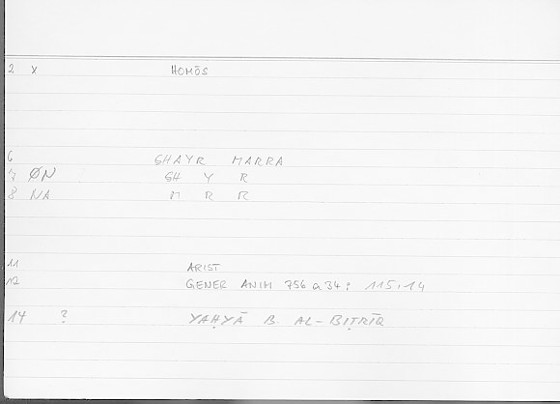 2 x HOMŌS
6 GHAYR MARRA
7 ØN GH Y R
8 NA M R R
11 ARIST
12 GENER ANIM 756 a 34 : 115,14
14 ? YAḤYĀ B AL-BIṬRĪQ